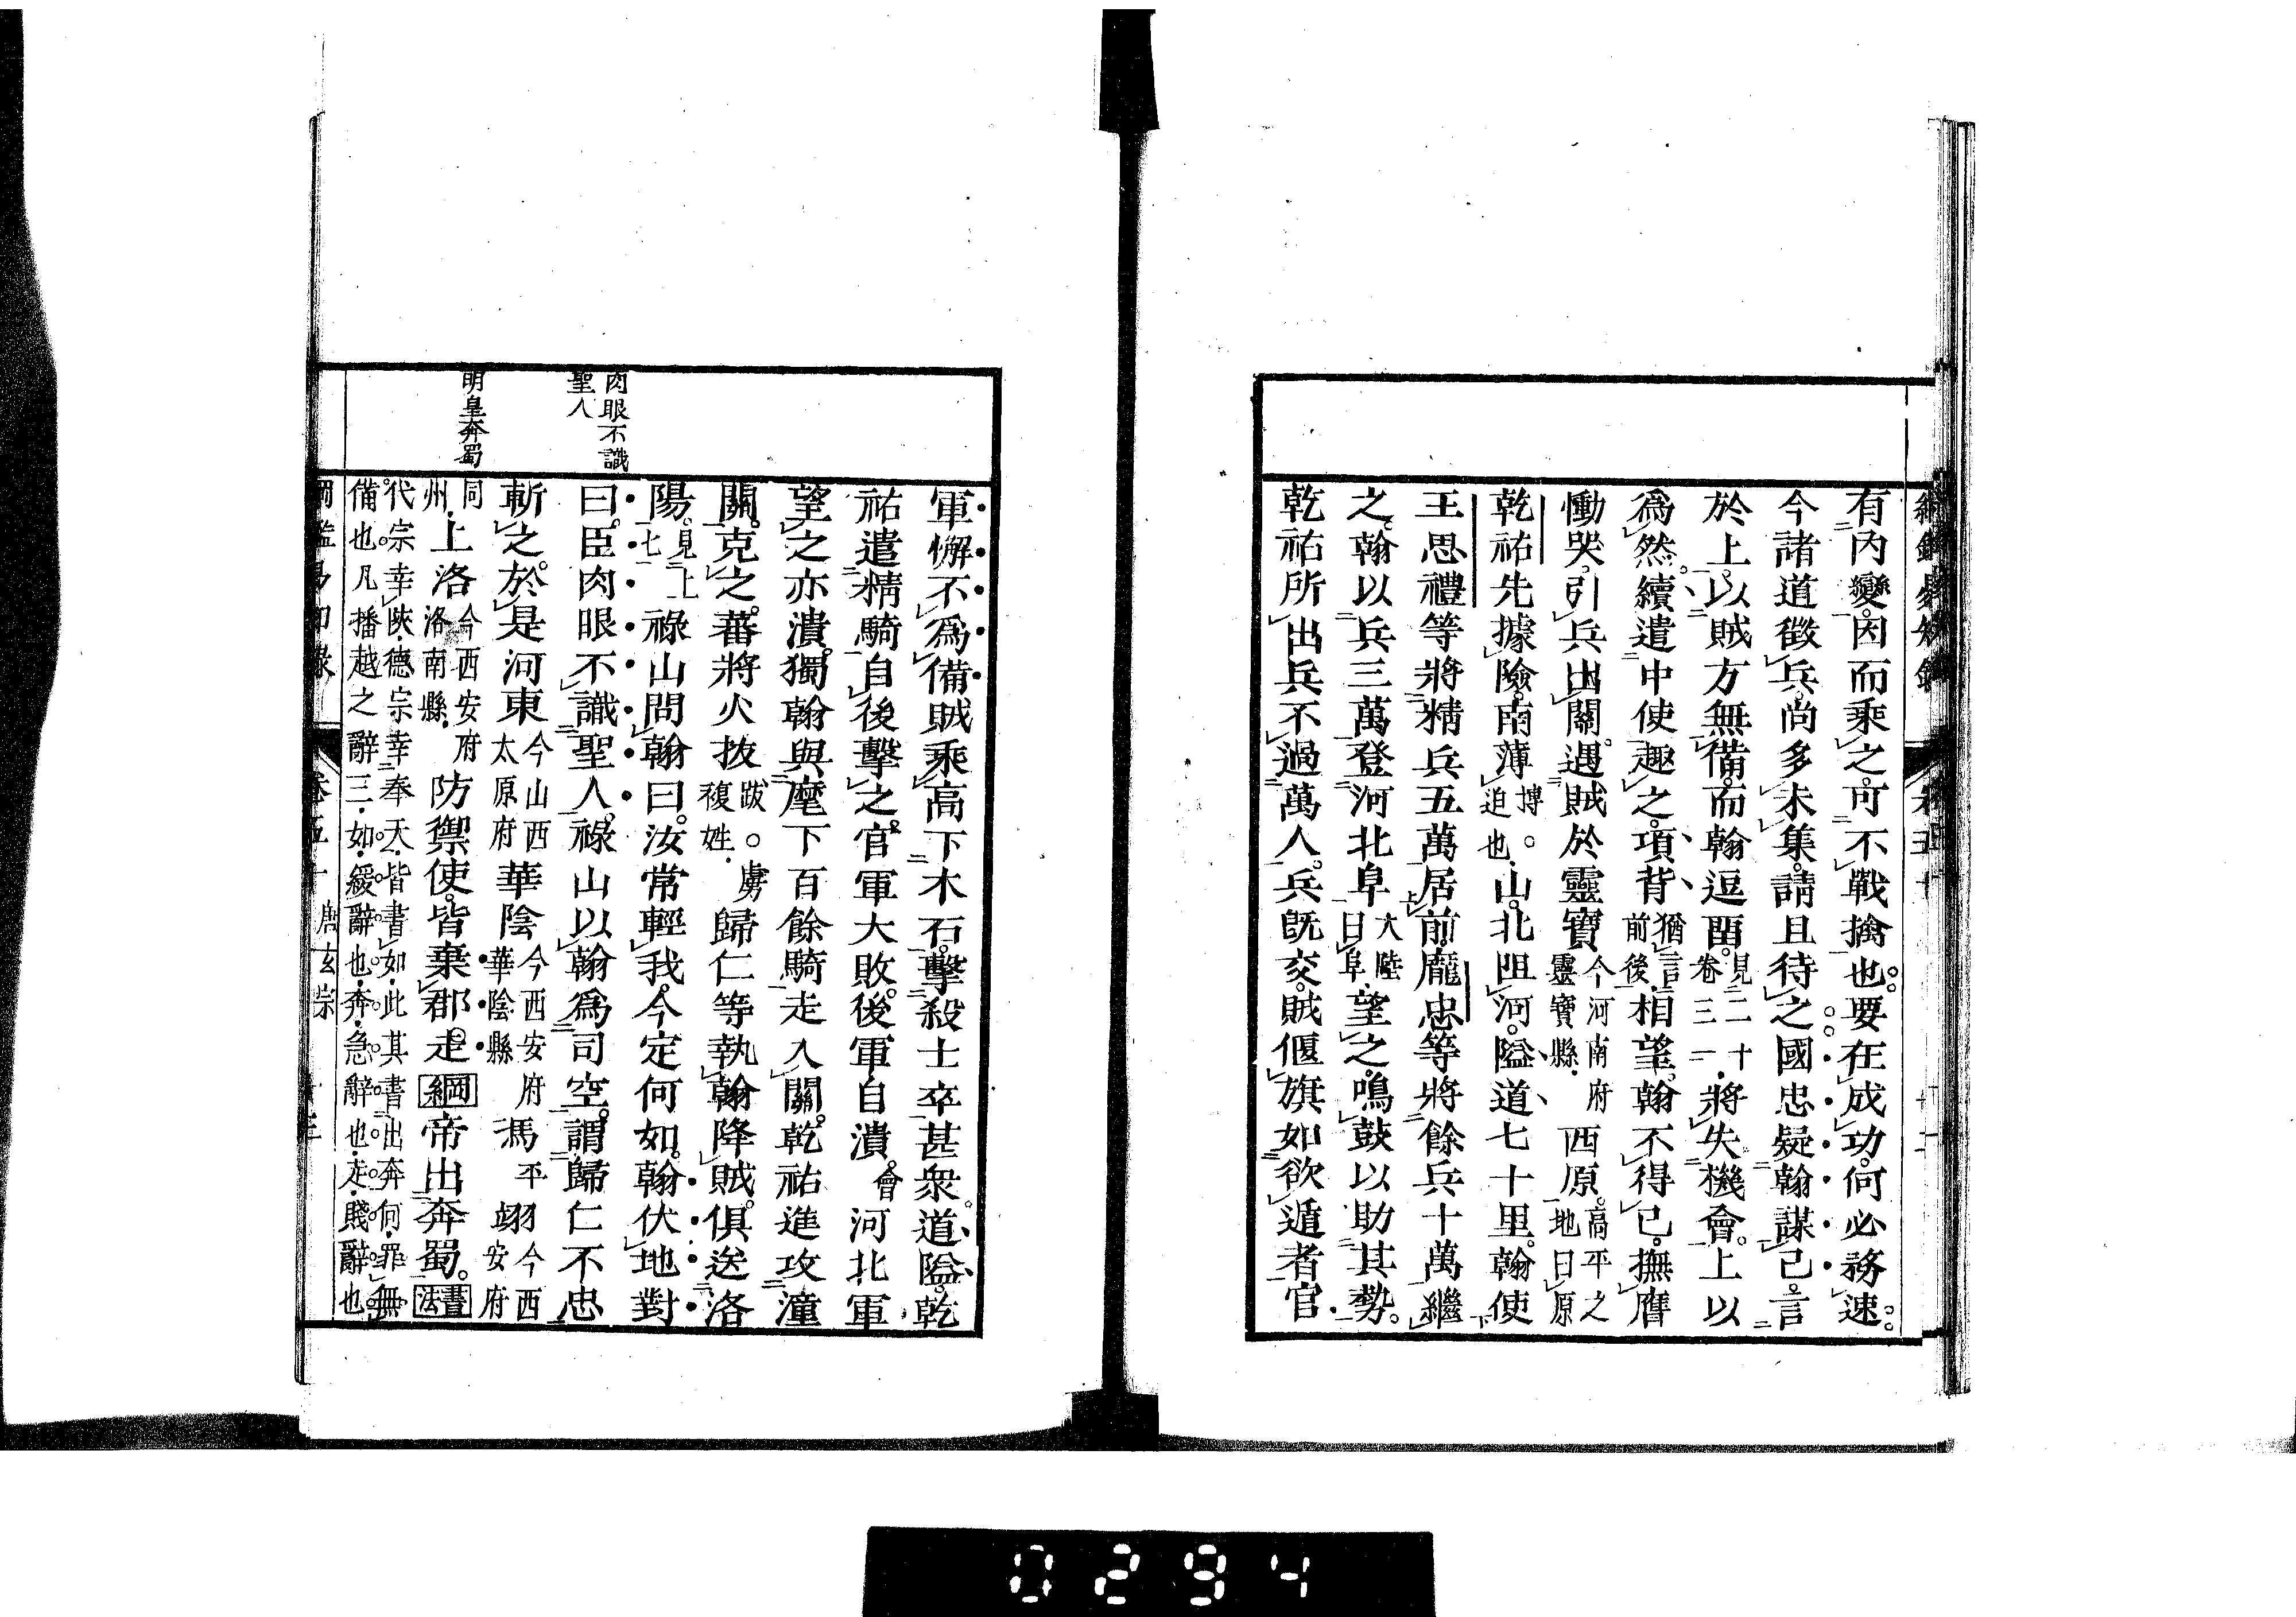 有內變因而乘之可不戰擒也要在成功何必務速
今諸道徵兵尚多未集請且待之國忠疑翰謀己言
於上以賊方無備而翰逗畱見二十卷三一將失機會上以
爲然續遣中使趣之項背猶言前後相望翰不得已撫膺
慟哭引兵出關遇賊於靈寶今河南府靈寶縣西原高平之地曰原
乾祐先據險南薄博迫也山北阻河隘道七十里翰使
王思禮等將精兵五萬居前龐忠等將餘兵十萬繼
之翰以兵三萬登河北阜大陸曰阜望之鳴鼓以助其勢
乾祐所出兵不過萬人兵旣交賊偃旗如欲遁者官
軍懈不爲備賊乘高下木石擊殺士卒甚衆道隘乾
祐遣精騎自後擊之官軍大敗後軍自潰會河北軍
望之亦潰獨翰與麾下百餘騎走入關乾祐進攻潼
關克之蕃將火拔跋虜複姓歸仁等執翰降賊俱送洛
陽見上七祿山問翰曰汝常輕我今定何如翰伏地對
曰臣肉眼不識聖人祿山以翰爲司空謂歸仁不忠
斬之於是河東今山西太原府華陰今西安府華陰縣馮平翊今西安府
同州上洛今西安府洛南縣防禦使皆棄郡走綱帝出奔蜀書法
代宗幸陝德宗幸奉天皆書如此其書出奔何罪無
備也凡播越之辭三如緩辭也奔急辭也走賤辭也
肉眼不識
聖人
明皇奔蜀
唐玄宗
0294